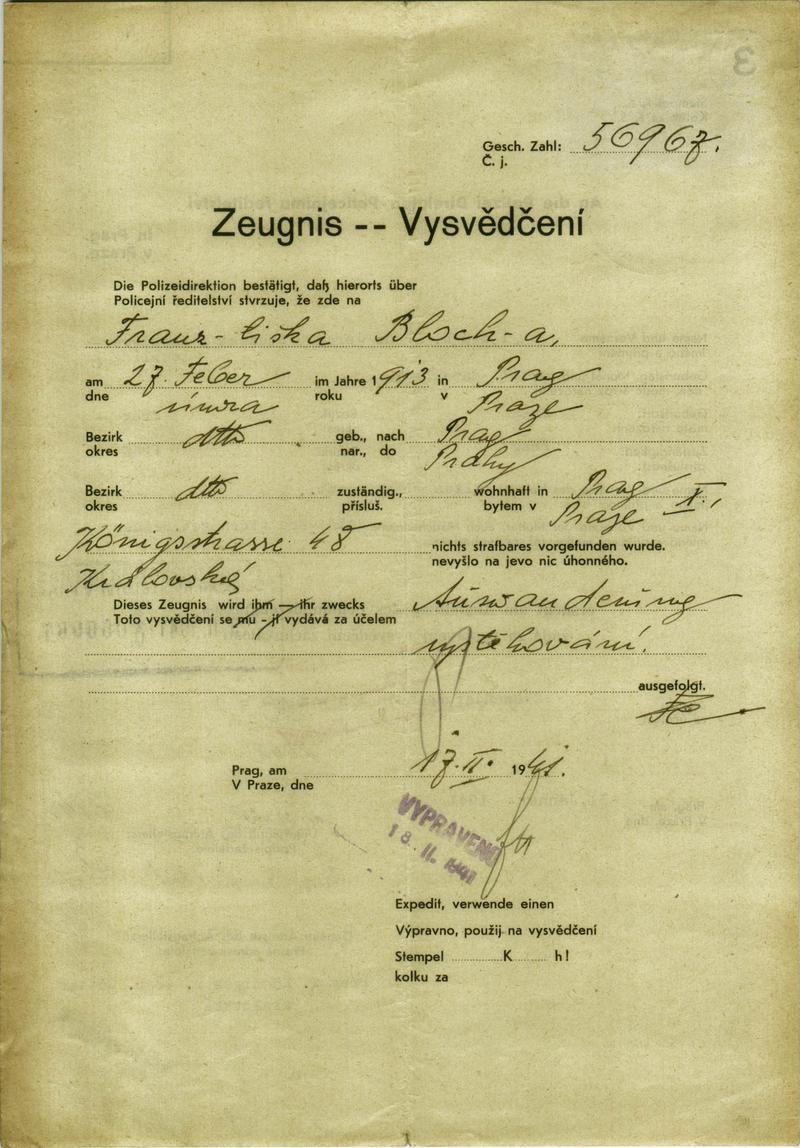 Gesch. Zahl: 56967.
Č. j.
Zeugnis -- Vysvědčení
Die Polizeidirektion bestätigt, daß hierorts über
Policejní ředitelství stvrzuje, že zde na
Franz-tiška Bloch-a,
am 27. Feber im Jahre 1913 in Prag
dne února roku v Praze
Bezirk dtto geb., nach Prag
okres nar., do Prahy
Bezirk dtto zuständig., wohnhaft in Prag X.,
okres přísluš. bytem v Praze
Königstrasse 48 nichts strafbares vorgefunden wurde.
Královská nevyšlo na jevo nic úhonného.
Dieses Zeugnis wird ihm — ihr zwecks Auswanderung
Toto vysvědčení se mu - jí vydává za účelem
vystěhování.
ausgefolgt.
Prag, am 17. II. 1941.
V Praze, dne
VYPRAVENO
18. II. 1941
Expedit, verwende einen
Výpravno, použij na vysvědčení
Stempel K h!
kolku za